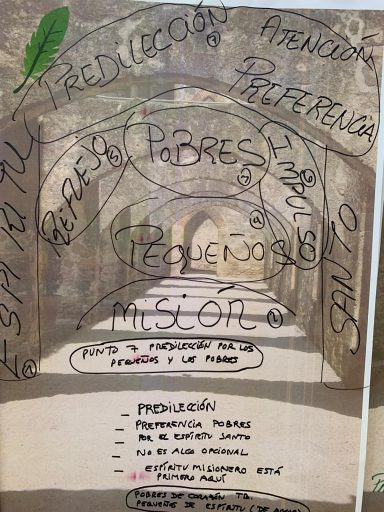 PREDILECCIÓN
ATENCIÓN
PREFERENCIA
ESPIRITU
REFLEJO
POBRES
IMPULSO
PEQUEÑOS
SANTO
MISIÓN
PUNTO 7 PREDILECCIÓN POR LOS
PEQUEÑOS Y LOS POBRES
_ PREDILECCIÓN
_ PREFERENCIA POBRES
POR EL ESPÍRITU SANTO
_ NO ES ALGO OPCIONAL
_ ESPÍRITU MISIONERO ESTÁ
PRIMERO AQUÍ
POBRES DE CORAZÓN TB.
PEQUEÑOS DE ESPÍRITU (DE